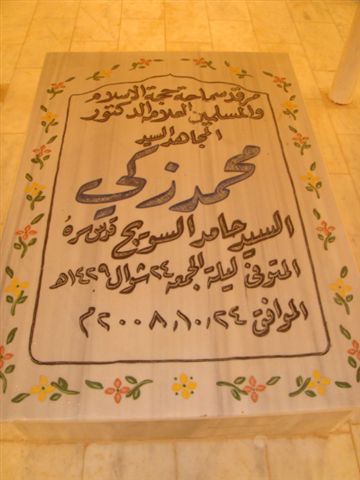 مرقد سماحة حجة الإسلام
والمسلمين العلامة الدكتور
المجاهد السيد
محمد زكي
السيد حامد السويج قدس سره
المتوفى ليلة الجمعة ٢٤ شوال ١٤٢٩هـ
الموافق ٢٠٠٨،١٠،٢٤م